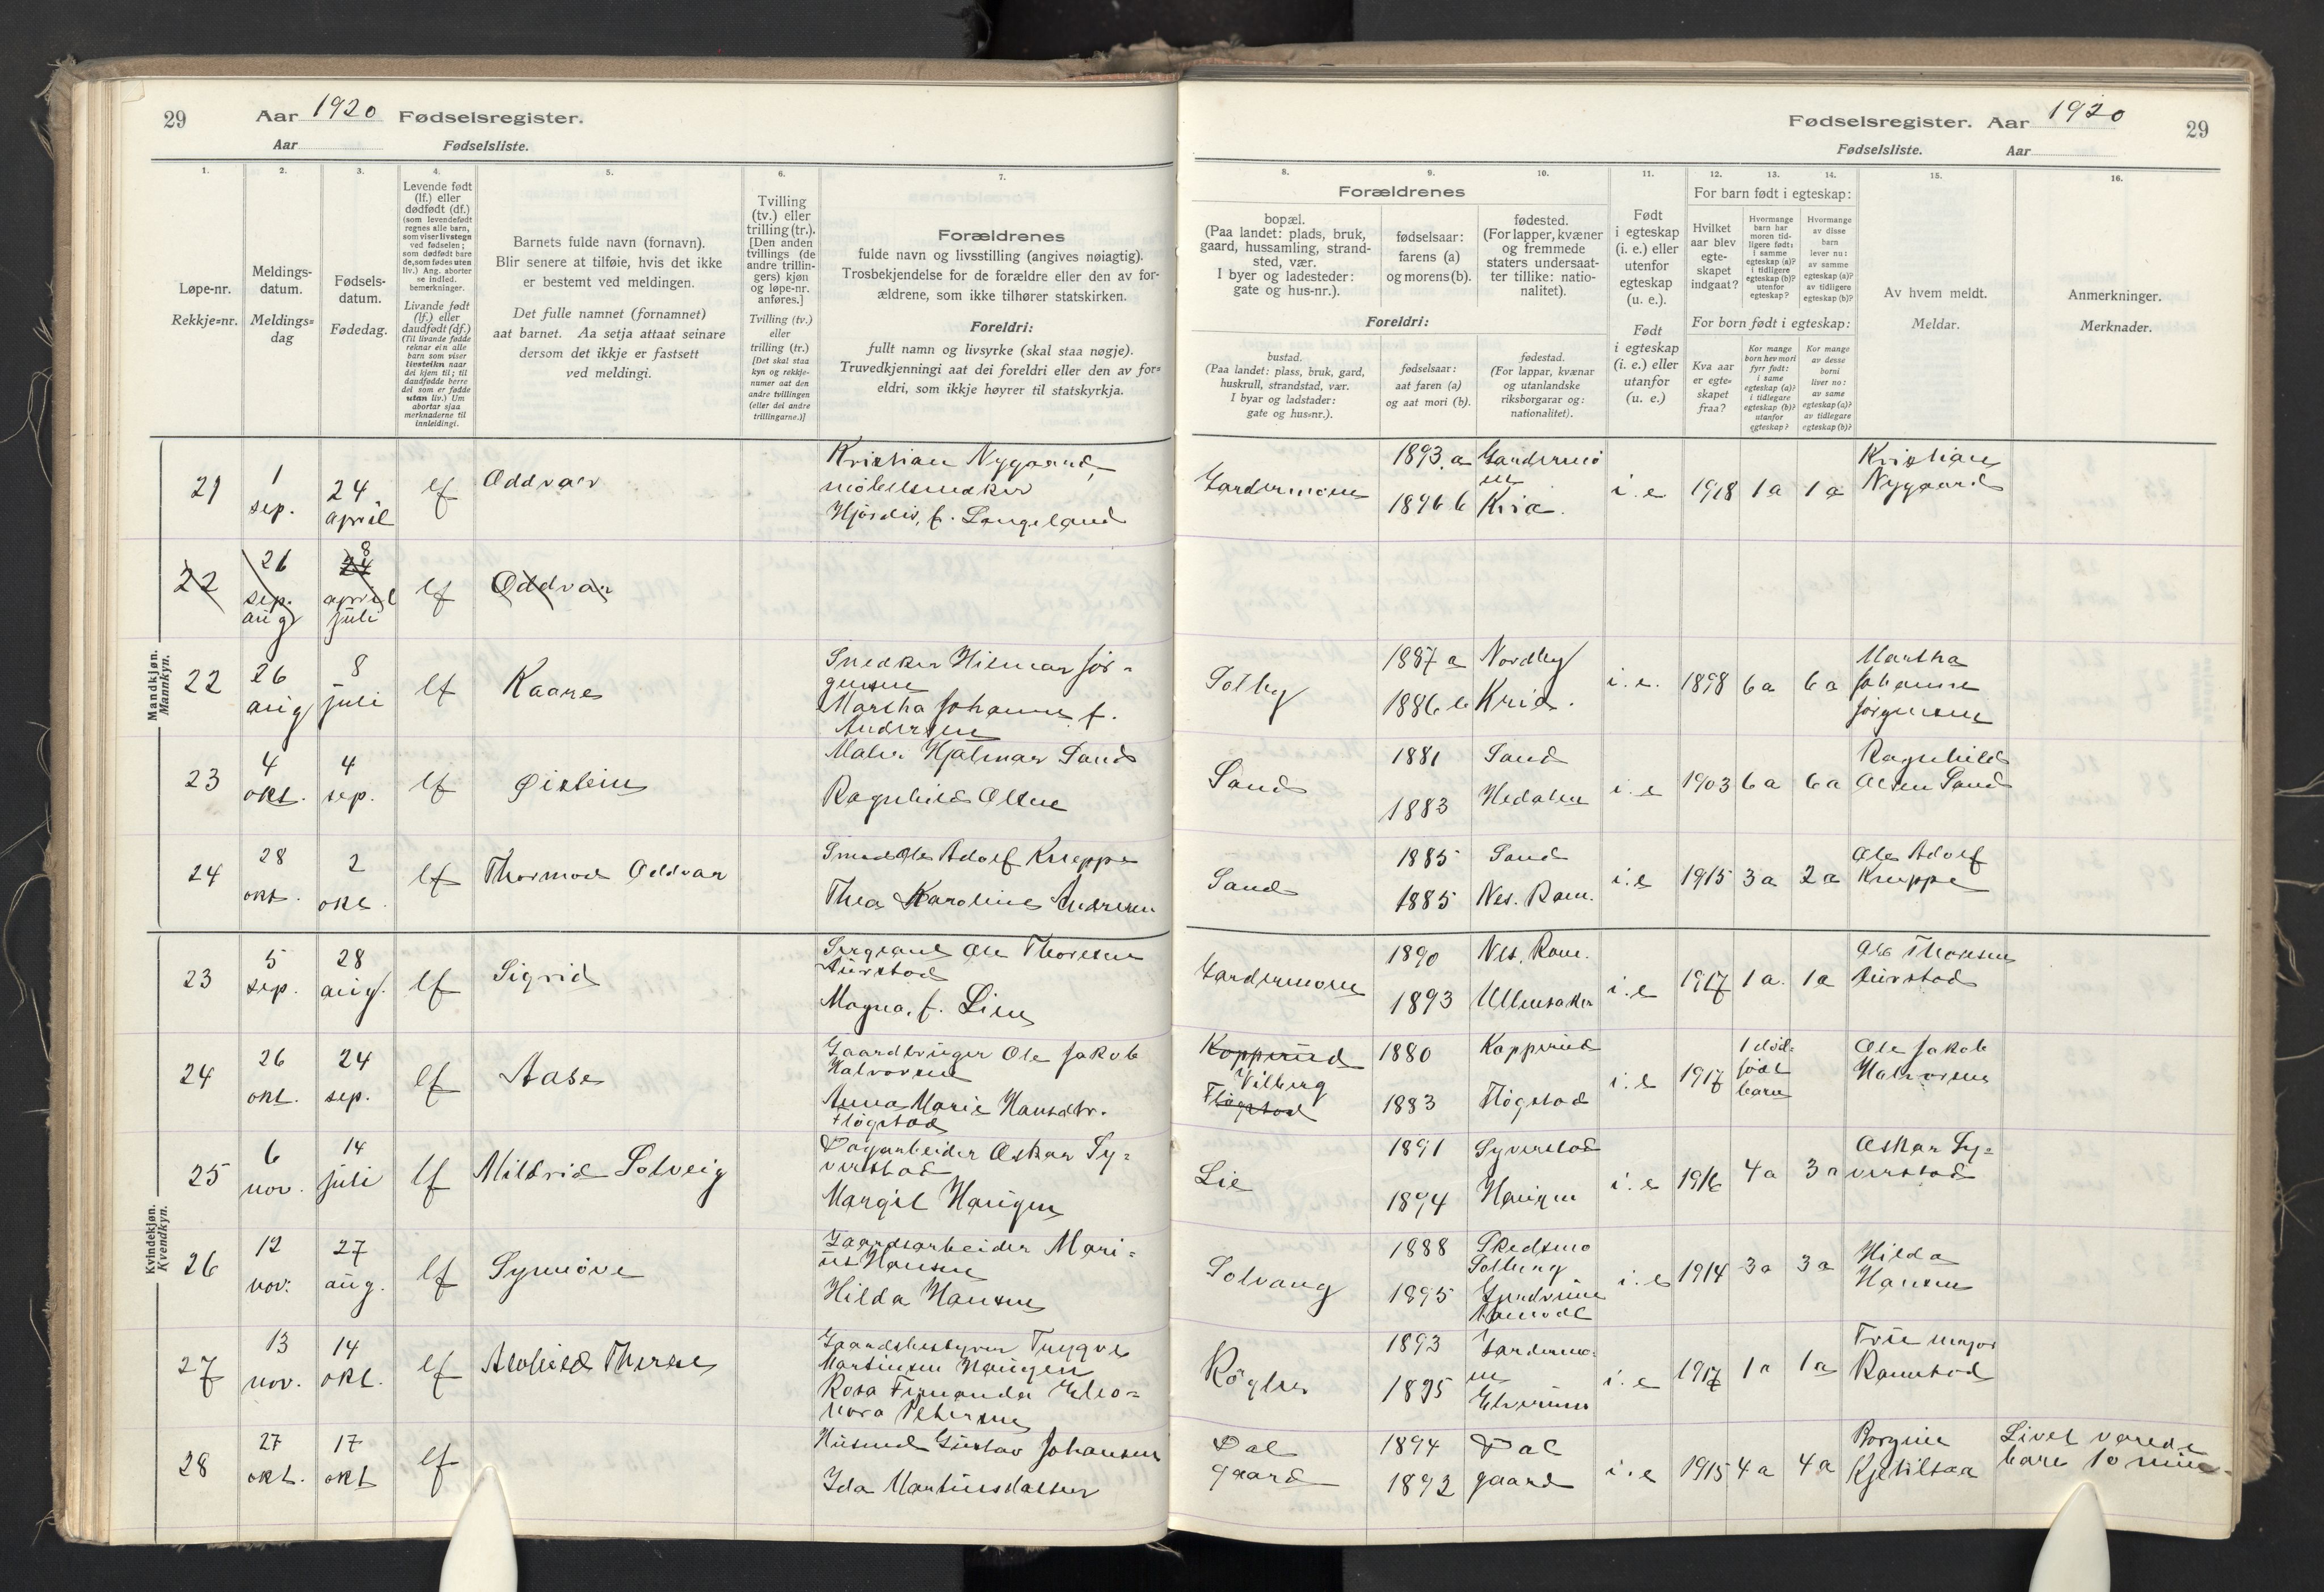 29 Aar 1920 Fødselsregister.
Aar Fødselsliste.
1.
Løpe-nr.
Rekkje=nr.
2.
Meldings-
datum.
Meldings=
dag
3.
Fødsels-
datum.
Fødedag.
4.
Levende født
(lf.) eller
dødfødt (df.)
(som levendefødt
regnes alle barn,
som viser livstegn
ved fødselen;
som dødfødt bare
de, som fødes uten
liv.) Ang. aborter
se indled.
bemerkninger.
Livande født
(lf.) eller
daudfødt (df.)
(Til livande fødde
reknar ein alle
barn som viser
livsteikn naar
dei kjem til; til
daudfødde berre
dei som er fødde
utan liv.) Um
abortar sjaa
merknaderne til
innleidingi.
5.
Barnets fulde navn (fornavn).
Blir senere at tilføie, hvis det ikke
er bestemt ved meldingen.
Det fulle namnet (fornamnet)
aat barnet. Aa setja attaat seinare
dersom det ikkje er fastsett
ved meldingi.
6.
Tvilling
(tv.) eller
trilling (tr.).
[Den anden
tvillings (de
andre trillin-
gers) kjøn
og løpe-nr.
anføres.]
Tvilling (tv.)
eller
trilling (tr.)
[Det skal staa
kyn og rekkje-
numer aat den
andre tvillingen
(eller dei andre
trillingarne.)]
7.
Forældrenes
fulde navn og livsstilling (angives nøiagtig).
Trosbekjendelse for de forældre eller den av for-
ældrene, som ikke tilhører statskirken.
Foreldri:
fullt namn og livsyrke (skal staa nøgje).
Truvedkjenningi aat dei foreldri eller den av for=
eldri, som ikkje høyrer til statskyrkja.
Mandkjøn.
Mannkyn.
21 1 sep. 24 april lf Oddvar
Kristian Nygaard,
møbelsnedker
Hjørdis, f. Langeland
22 26 sep. aug 24 8 april juli lf Oddvar
22 26 aug 8 juli lf Kaare
Snedker Hilmar Jör-
gensen
Martha Johanne f.
Andersen
23 4 okt. 4 sep. lf Øistein
Maler Hjalmar Sand
Ragnhild Olsen
24 28 okt. 2 okt. lf Thormod Oddvar
Smed Ole Adolf Kneppe
Thea Karoline Andresen
Kvindekjøn.
Kvendkyn.
23 5 sep. 28 aug. lf Sigrid
Sergeant Ole Thoresen
Aurstad
Magna, f. Lien
24 26 okt. 24 sep. lf Aase
Gaardbruger Ole Jakob
Halvorsen
Anna Marie Hansdtr.
Flögstad
25 6 nov. 14 juli lf Mildrid Solveig
Dagarbeider Oskar Sy=
verstad
Margit Haugen
26 12 nov. 27 aug. lf Synnöve
Gaardsarbeider Mari=
us Hansen
Hilda Hansen
27 13 nov. 14 okt. lf Therese
Gaardsbestyrer Trygve
Martinsen Haugen
Rosa Fernanda Eleo=
nora Petersen
28 27 okt. 17 okt lf
Husmd Gustav Johansen
Ida
Fødselsregister. Aar 1920 29
Fødselsliste. Aar
8.
9.
10.
Forældrenes
bopæl.
(Paa landet: plads, bruk,
gaard, hussamling, strand-
sted, vær.
I byer og ladesteder:
gate og hus-nr.).
fødselsaar:
farens (a)
og morens (b).
fødested.
(For lapper, kvæner
og fremmede
staters undersaat-
ter tillike: natio-
nalitet).
Foreldri:
bustad.
(Paa landet: plass, bruk, gard,
huskrull, strandstad, vær.
I byar og ladstader:
gate og hus=nr.).
fødselsaar:
aat faren (a)
og aat mori (b).
fødestad.
(For lappar, kvænar
og utanlandske
riksborgarar og:
nationalitet).
11.
Født
i egteskap
(i. e.) eller
utenfor
egteskap
(u. e.).
Født
i egteskap
(i. e.) eller
utanfor
(u. e.)
12.
13.
14.
For barn født i egteskap:
Hvilket
aar blev
egte-
skapet
indgaat?
Hvormange
barn har
moren tid-
ligere født:
i samme
egteskap (a)?
i tidligere
egteskap (b)?
utenfor
egteskap?
Hvormange
av disse
barn
lever nu:
av samme
egteskap (a)?
av tidligere
egteskap (b)?
For born født i egteskap:
Kva aar
er egte=
skapet
fraa?
Kor mange
born hev mori
fyrr født:
i same
egteskap (a)?
i tidlegare
egteskap (b)?
utanfor
egteskap?
Kor mange
av desse
borni
liver no:
av same
egteskap (a)?
av tidlegare
egteskap (b)?
15.
Av hvem meldt.
Meldar.
16.
Anmerkninger.
Merknader.
Gardermoen 1893 a Gardermo
en
1896 b Kria. i. e. 1918 1 a 1 a Kristian
Nygaard
Solby 1887 a Nordby
1886 b Kria. i. e. 1898 6 a 6 a Martha
Johanne
Jörgensen
Sand 1881 Sand
1883 Hedalen i. e 1903 6 a 6 a Ragnhild
Olsen Sand
Sand 1885 Sand
1885 Nes. Rom. i. e 1915 3 a 2 a Ole Adolf
Kneppe
Gardermoen 1890 Nes. Rom.
1893 Ullensaker i. e 1917 1 a. 1 a Ole Thoresen
Aurstad
Kopperud 1880 Kopperud
Vilberg
Flögstad 1883 Flögstad i. e 1917 1 död=
födt
barn
Ole Jakob
Halvorsen
Lie 1891 Syverstad
1894 Haugen i. e 1916 4 a 3 a Oskar Sy=
verstad
Solvang 1888 Skedsmo
1895 i. e 1914 3 a 3 a Hilda
Hansen
Röglen 1893 Gardermo=
en
1895 Elverum i. e 1917 1 a 1 a Frue major
Ramstad
Dal
gaard 1894 Dal
1892 gaard i. e 1915 4 a 4 a
Kjetilsaa
Livet varede
bare 10 min.